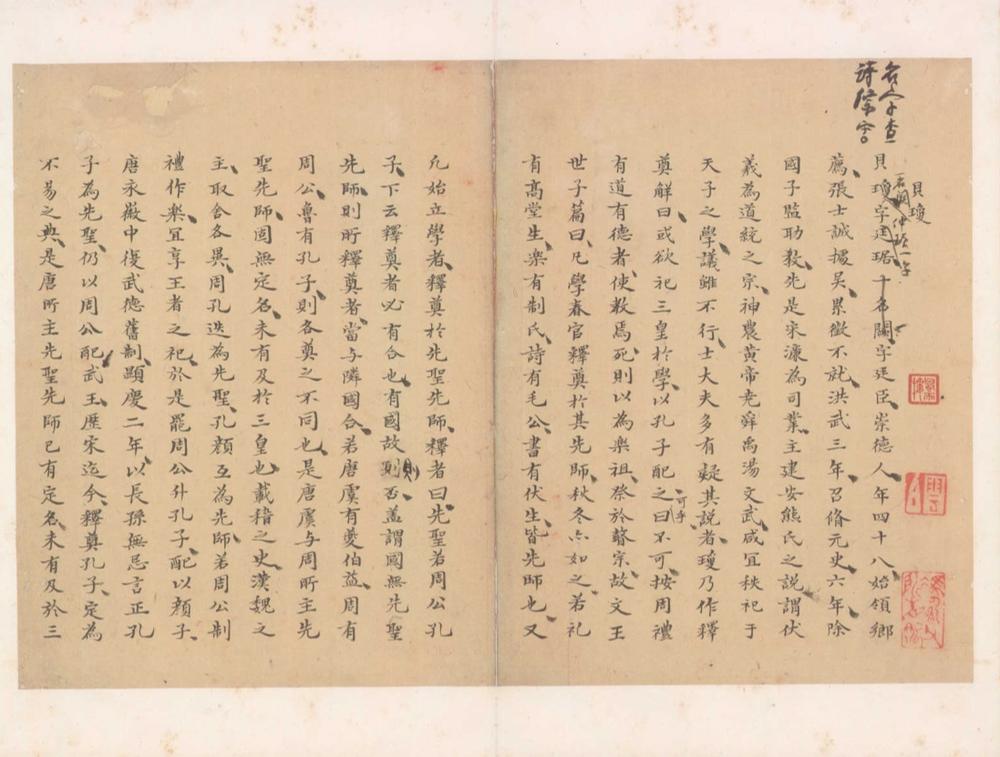 貝瓊
貝瓊字廷琚十名闕字廷臣崇德人年四十八始領鄉
一名闕仲琚一字
薦張士誠據吳累徵不就洪武三年召脩元史六年除
國子監助教先是宋濂為司業主建安熊氏之說謂伏
羲為道統之宗神農黃帝堯舜禹湯文武咸宜秩祀于
天子之學議雖不行士大夫多有疑其說者瓊乃作釋
奠解曰或欲祀三皇於學以孔子配之可乎曰不可按周禮
有道有德者使教焉死則以為樂祖祭於瞽宗故文王
世子篇曰凡學春官釋奠於其先師秋冬亦如之若禮
有高堂生樂有制氏詩有毛公書有伏生皆先師也又
凡始立學者釋奠於先聖先師釋者曰先聖若周公孔
子下云釋奠者必有合也有國故則否蓋謂國無先聖
先師則所釋奠者當与隣國合若唐虞有夔伯益周有
周公魯有孔子則各奠之不同也是唐虞与周所主先
聖先師固無定名未有及於三皇也載稽之史漢魏之
主取舍各異周孔迭為先聖孔顏互為先師若周公制
禮作樂宜享王者之祀於是罷周公升孔子配以顏子
唐永徽中復武德舊制顯慶二年以長孫無忌言正孔
子為先聖仍以周公配武王歷宋迄今釋奠孔子定為
不易之典是唐所主先聖先師已有定名未有及於三